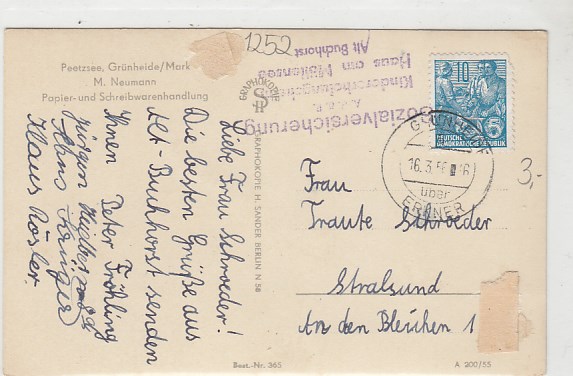 Peetzsee, Grünheide/Mark
M. Neumann
Papier- und Schreibwarenhandlung
1252
Sozialversicherung
A. d. ö. R.
Haus am Möllensee
Alt Buchhorst
GRAPHOKOPIE
GRAPHOKOPIE H. SANDER BERLIN N 58
DEUTSCHE
DEMOKRATISCHE REPUBLIK
5
16.3.56
über
ERKNER
3,-
Liebe Frau Schröder!
Die besten Grüße aus
Alt-Buchhorst senden
Ihnen Peter Fröhling
Jürgen
Klaus Köster
Frau
Traute Schröder
Stralsund
An den Bleichen 1
Best.-Nr. 365
A 200/55